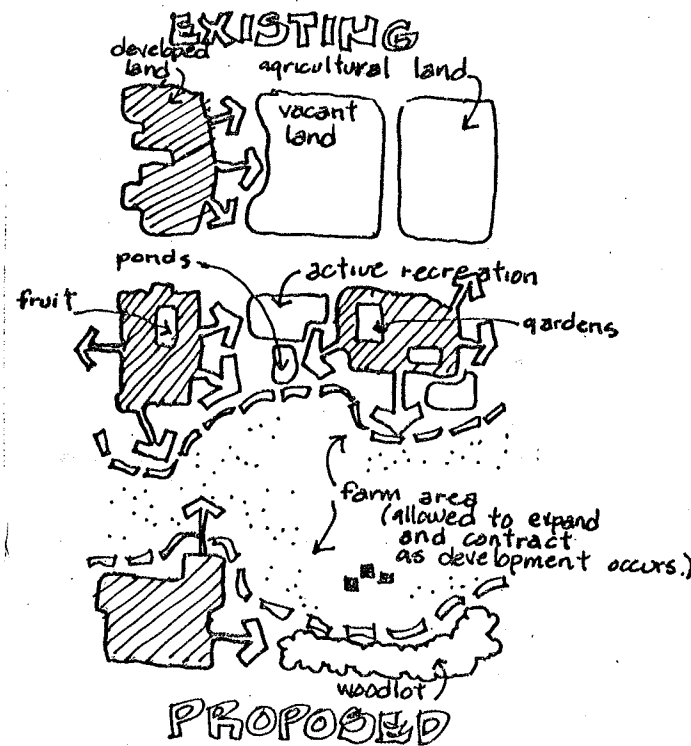 EXISTING
developed
land
agricultural land
vacant
land
ponds
active recreation
fruit
gardens
farm area
(allowed to expand
and contract
as development occurs.)
woodlot
PROPOSED